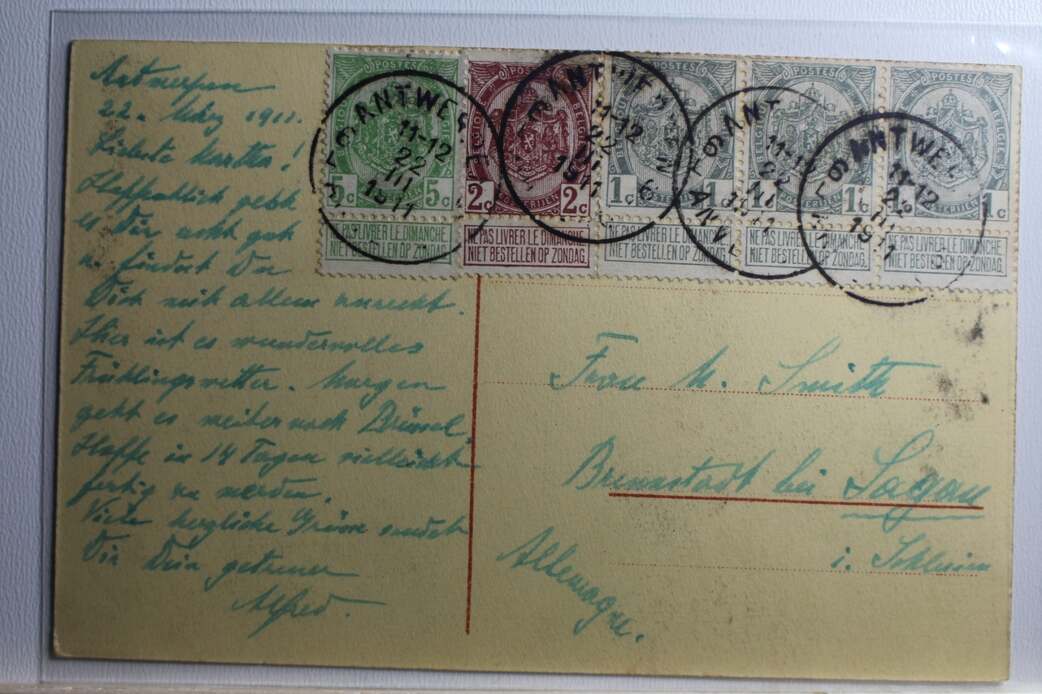 Antwerpen
22. März 1911.
Liebste Martha!
Hoffentlich geht
es Dir recht gut
u. findest Du
Dich mit allem zurecht.
Hier ist es wundervolles
Frühlingswetter. Morgen
geht es weiter nach Brüssel.
Hoffe in 14 Tagen vielleicht
fertig zu werden.
Viele herzliche Grüsse sendet
Dir Dein getreuer
Alfred.
POSTES
5c 5c
NE PAS LIVRER LE DIMANCHE
NIET BESTELLEN OP ZONDAG.
POSTES BELGIQUE
POSTERIJEN
2c 2c
NE PAS LIVRER LE DIMANCHE
NIET BESTELLEN OP ZONDAG.
POSTES
1c 1c
NE PAS LIVRER LE DIMANCHE
NIET BESTELLEN OP ZONDAG.
POSTES
1c
NE PAS LIVRER LE DIMANCHE
NIET BESTELLEN OP ZONDAG.
POSTES
POSTERIJEN
1c
NE PAS LIVRER LE DIMANCHE
NIET BESTELLEN OP ZONDAG.
11-12
22
III
1911
Frau M. Smith
bei Sagan
i. Schlesien
Allemagne.